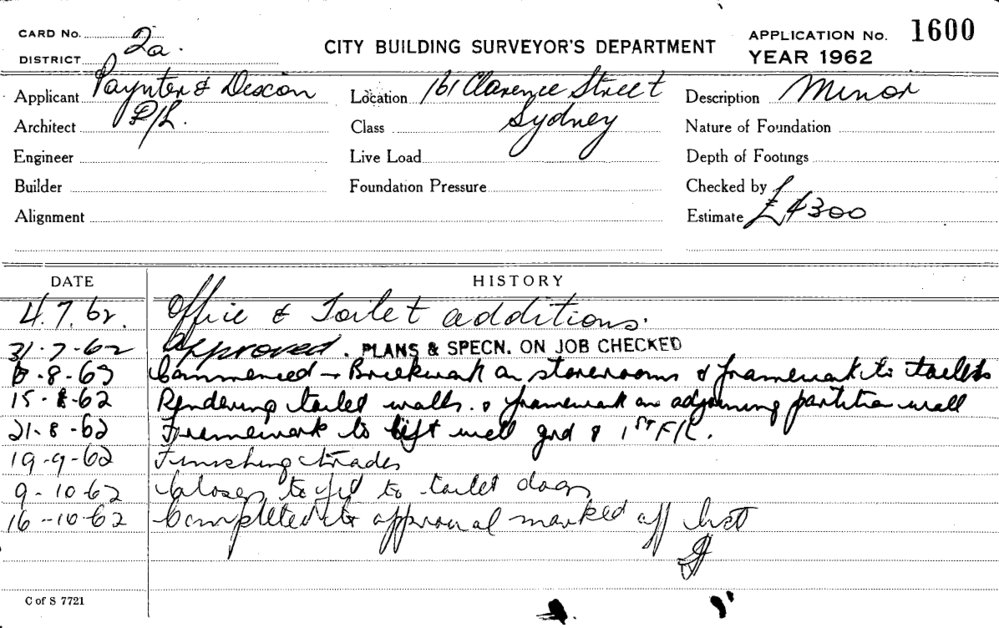 CARD No.
CITY BUILDING SURVEYOR'S DEPARTMENT
APPLICATION No. 1600
DISTRICT 2a.
YEAR 1962
Applicant Paynter & Dixon P/L.
Location 161 Clarence Street Sydney
Description Minor
Architect
Class
Nature of Foundation
Engineer
Live Load
Depth of Footings
Builder
Foundation Pressure
Checked by
Alignment
Estimate £4300
DATE HISTORY
4.7.62. Office & Toilet additions.
31-7-62 Approved. PLANS & SPECN. ON JOB CHECKED
8-8-62 Commenced - Brickwork on storerooms & framework to toilets
15-8-62 Rendering toilet walls. & framework on adjoining partition wall
21-8-62 Framework to lift well grd & 1ST F/L.
19-9-62 Finishing trades
9-10-62 to toilet doors
16-10-62 Completed to approval marked off list
C of S 7721